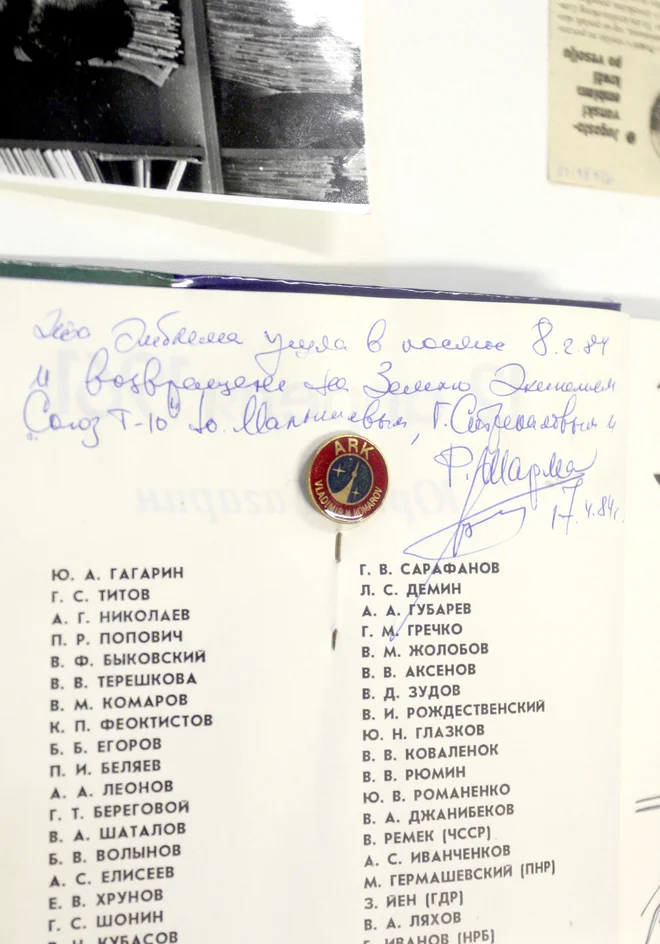 Jugoslo-
vanski
emblem
kroži
po vesolju
Эта Эмблема ушла в космос 8.2.84
и возвращена на Землю Экипажем
"Союз Т-10" Ю. Малышевым, Г. Стрекаловым и
Р. Шарма
17.4.84г.
ARK
VLADIMIR M. KOMAROV
Ю. А. ГАГАРИН
Г. С. ТИТОВ
А. Г. НИКОЛАЕВ
П. Р. ПОПОВИЧ
В. Ф. БЫКОВСКИЙ
В. В. ТЕРЕШКОВА
В. М. КОМАРОВ
К. П. ФЕОКТИСТОВ
Б. Б. ЕГОРОВ
П. И. БЕЛЯЕВ
А. А. ЛЕОНОВ
Г. Т. БЕРЕГОВОЙ
В. А. ШАТАЛОВ
Б. В. ВОЛЫНОВ
А. С. ЕЛИСЕЕВ
Е. В. ХРУНОВ
Г. С. ШОНИН
В. Н. КУБАСОВ
Г. В. САРАФАНОВ
Л. С. ДЕМИН
А. А. ГУБАРЕВ
Г. М. ГРЕЧКО
В. М. ЖОЛОБОВ
В. В. АКСЕНОВ
В. Д. ЗУДОВ
В. И. РОЖДЕСТВЕНСКИЙ
Ю. Н. ГЛАЗКОВ
В. В. КОВАЛЕНОК
В. В. РЮМИН
Ю. В. РОМАНЕНКО
В. А. ДЖАНИБЕКОВ
В. РЕМЕК (ЧССР)
А. С. ИВАНЧЕНКОВ
М. ГЕРМАШЕВСКИЙ (ПНР)
З. ЙЕН (ГДР)
В. А. ЛЯХОВ
Г. ИВАНОВ (НРБ)